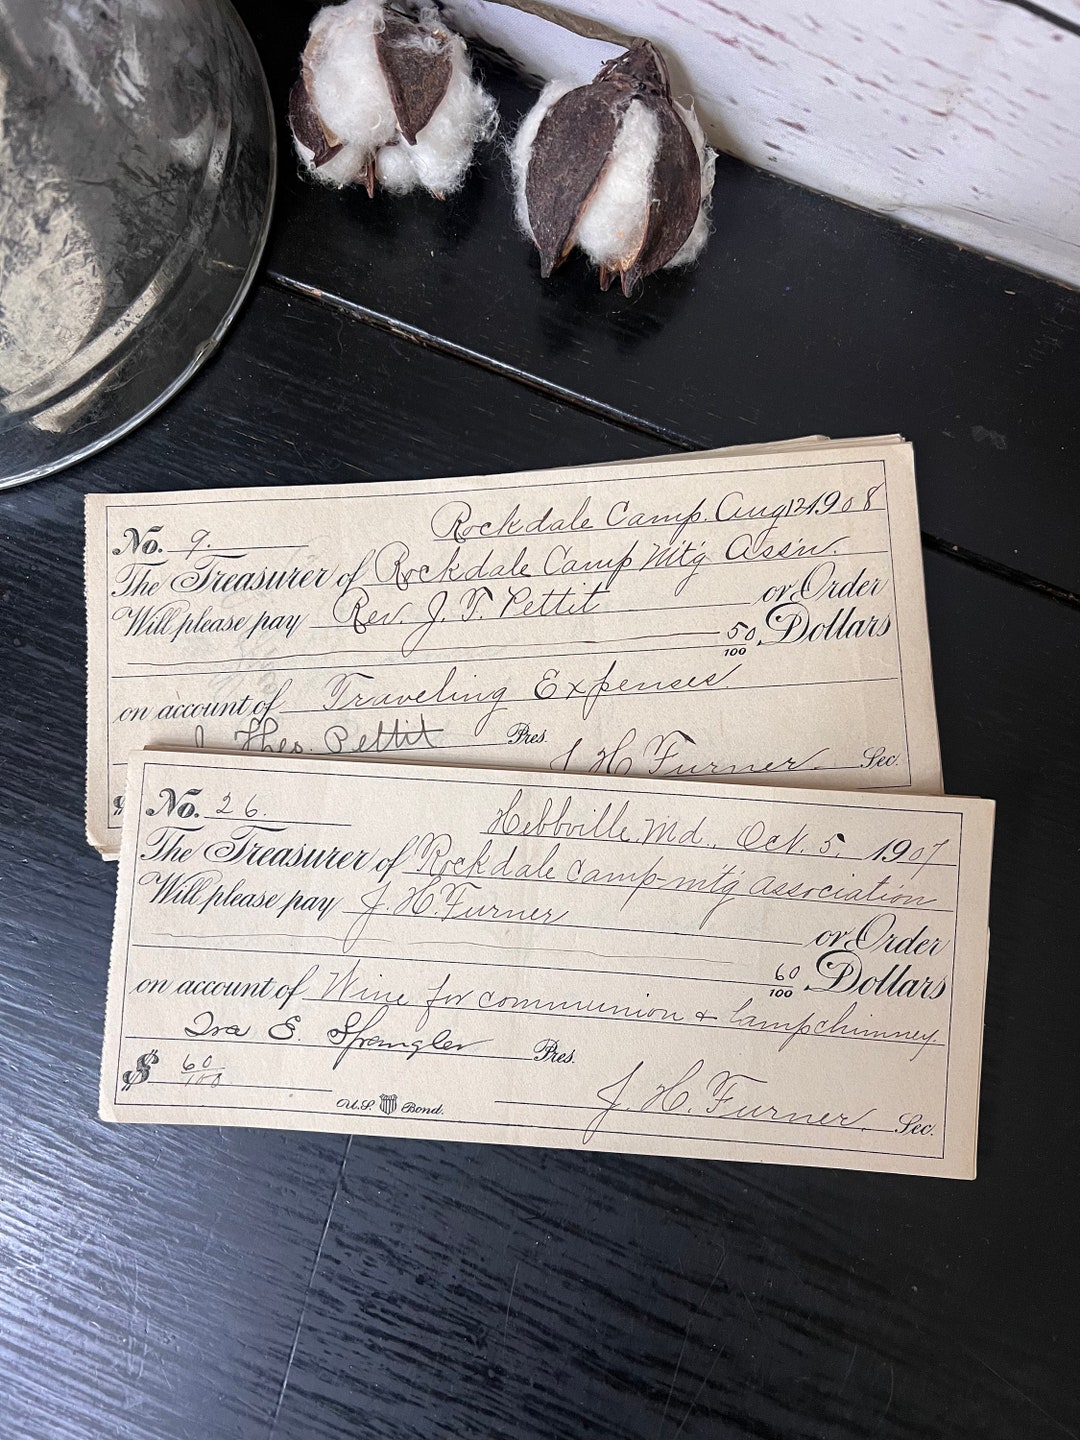 Rockdale Camp. Aug 12 1908
No. 9.
The Treasurer of Rockdale Camp Mt'g Ass'n.
Will please pay Rev. J. T. Pettit or Order
50/100 Dollars
on account of Traveling Expenses
J. Theo. Pettit Pres.
J. H. Furner Sec.
$
No. 26. Hebbville, Md., Oct. 5, 1907
The Treasurer of Rockdale Camp-mt'g Association
Will please pay J. H. Furner
or Order
60/100 Dollars
on account of Wine for communion & lampchimney.
Ira E. Spangler Pres.
$ 60/100
J. H. Furner Sec.
U.S. Bond.